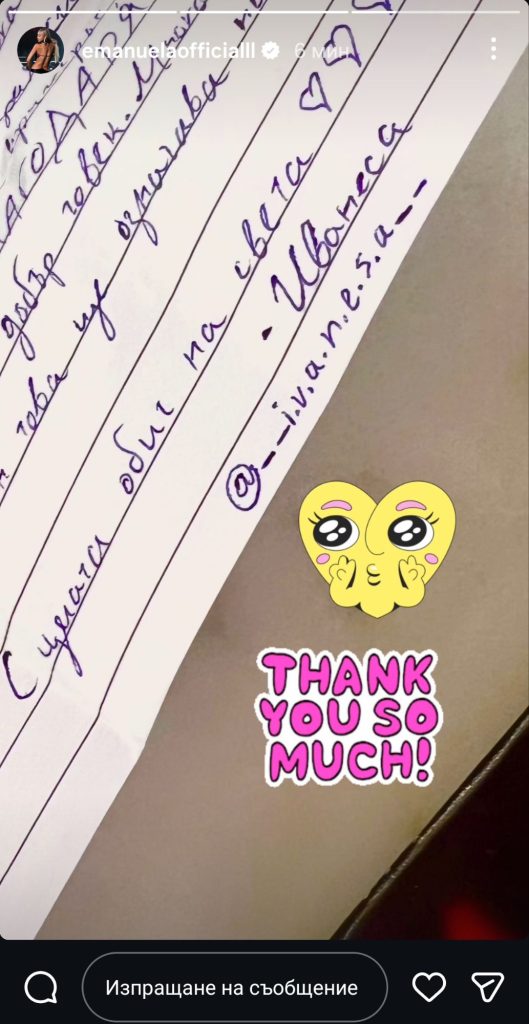 emanuelaofficialll 6 мин.
БЛАГОДАРЯ
добър човек. Много
това ще означава
С цялата обич на света ♡♡
- Иванеса
@__i.v.a.n.e.s.a__
THANK
YOU SO
MUCH!
Изпращане на съобщение